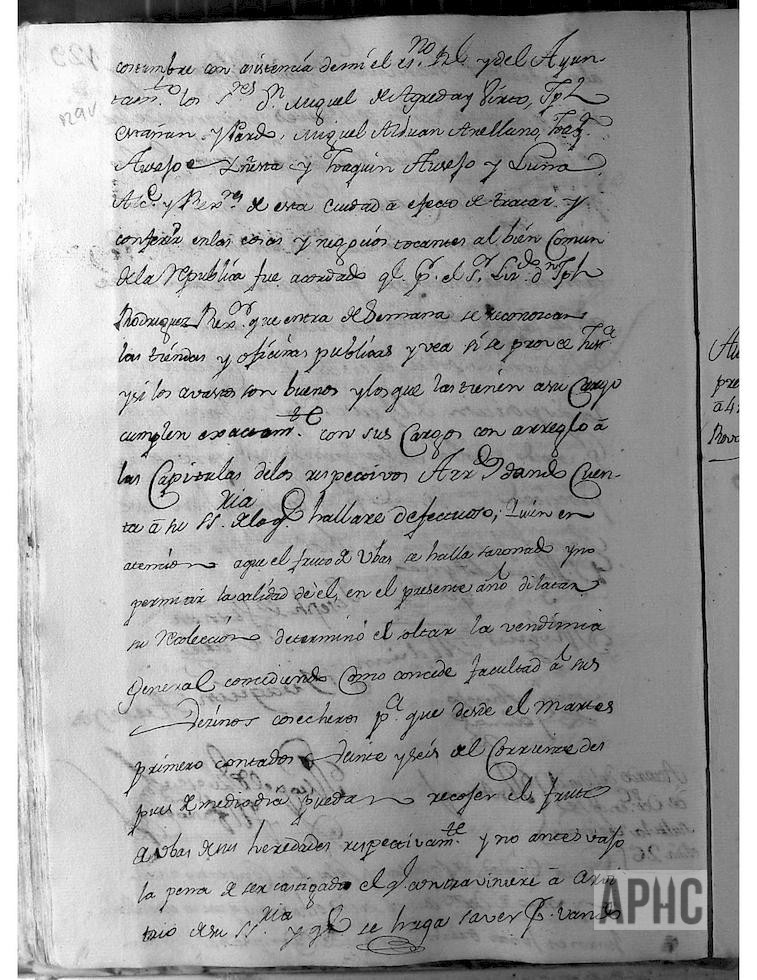 costumbre con asistencia de mi el es.no R.l y del Ayun-
tam.to los S.res D.n Miguel de Agreda y Virto, Jph
Castañan y Pardo, Miguel Alduan Arellano, Joaq.n
Ausejo e y Joaquin Ausejo y Luna
Alc.e y Rex.res de esta Ciudad a efecto de tratar y
conferir en las cosas y negocios tocantes al bien Comun
de la Republica fue acordado q.e p.r el S.r Liz.do d.n Jph
Rodriguez Rex.or que entra de Semana se reconozcan
las tiendas y oficinas publicas y vea si se provee Just.a
y si los avastos son buenos y los que las tienen a su Cargo
cumplen exactam.te con sus Cargos con arreglo â
las Capitulas de los respectivos Arr.dos dando Cuen-
ta â su SS.ria de lo q.e hallare defectuoso; Quien en
atencion a que el fruto de Ubas se halla sazonado y no
permitir la calidad de el, en el presente año dilatar
su recoleccion determinó el soltar la vendimia
General concediendo Como concede facultad â sus
Vezinos cosecheros p.a que desde el Martes
primero contados Veinte y seis del Corriente des
pues de medio dia puedan recoser el fruto
de ubas de sus heredades respectivam.te y no antes vajo
la pena de ser castigado el q.e contraviniere â arvi
trio de su SS.ria y q.e se haga saver p.r vando
129
129v
APHC